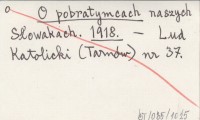 O pobratymcach naszych
Słowakach. 1918. – Lud
Katolicki (Tarnów) nr 37.